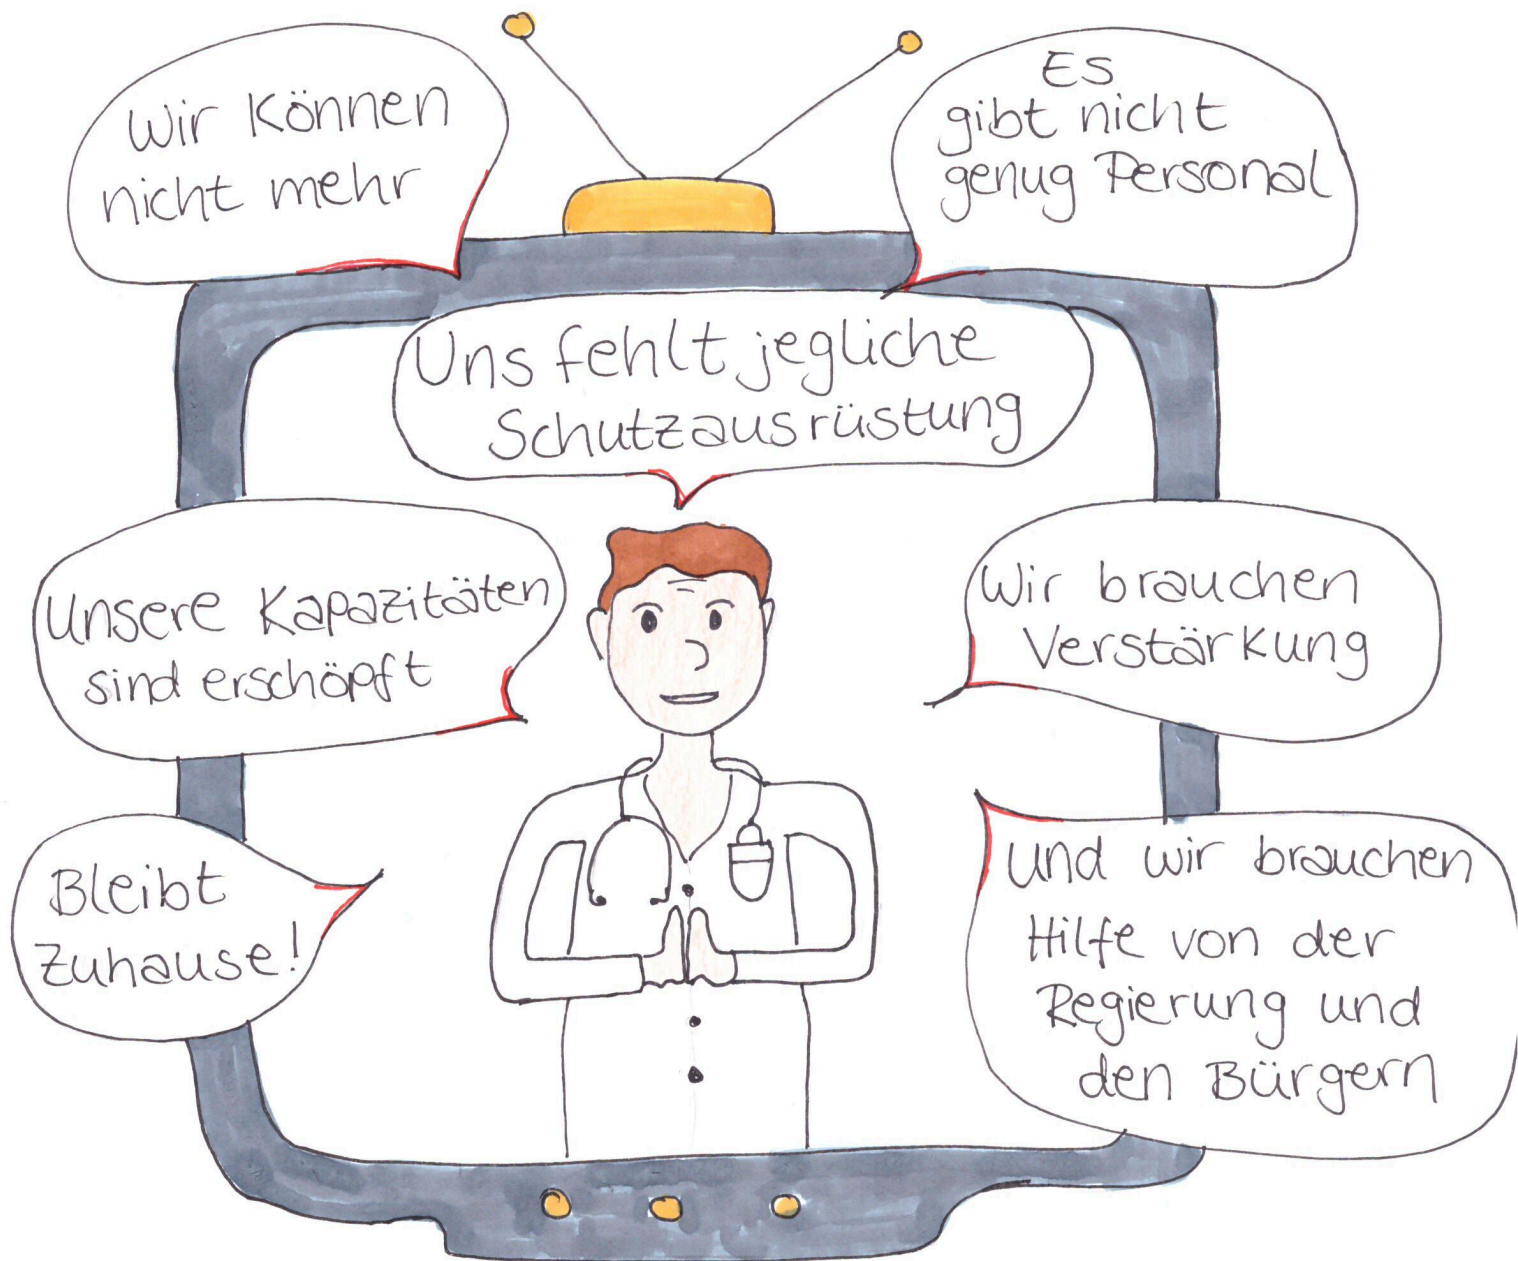 Wir Können
nicht mehr
Es
gibt nicht
genug Personal
Uns fehlt jegliche
Schutzausrüstung
Unsere Kapazitäten
sind erschöpft
Wir brauchen
Verstärkung
Bleibt
Zuhause!
Und wir brauchen
Hilfe von der
Regierung und
den Bürgern